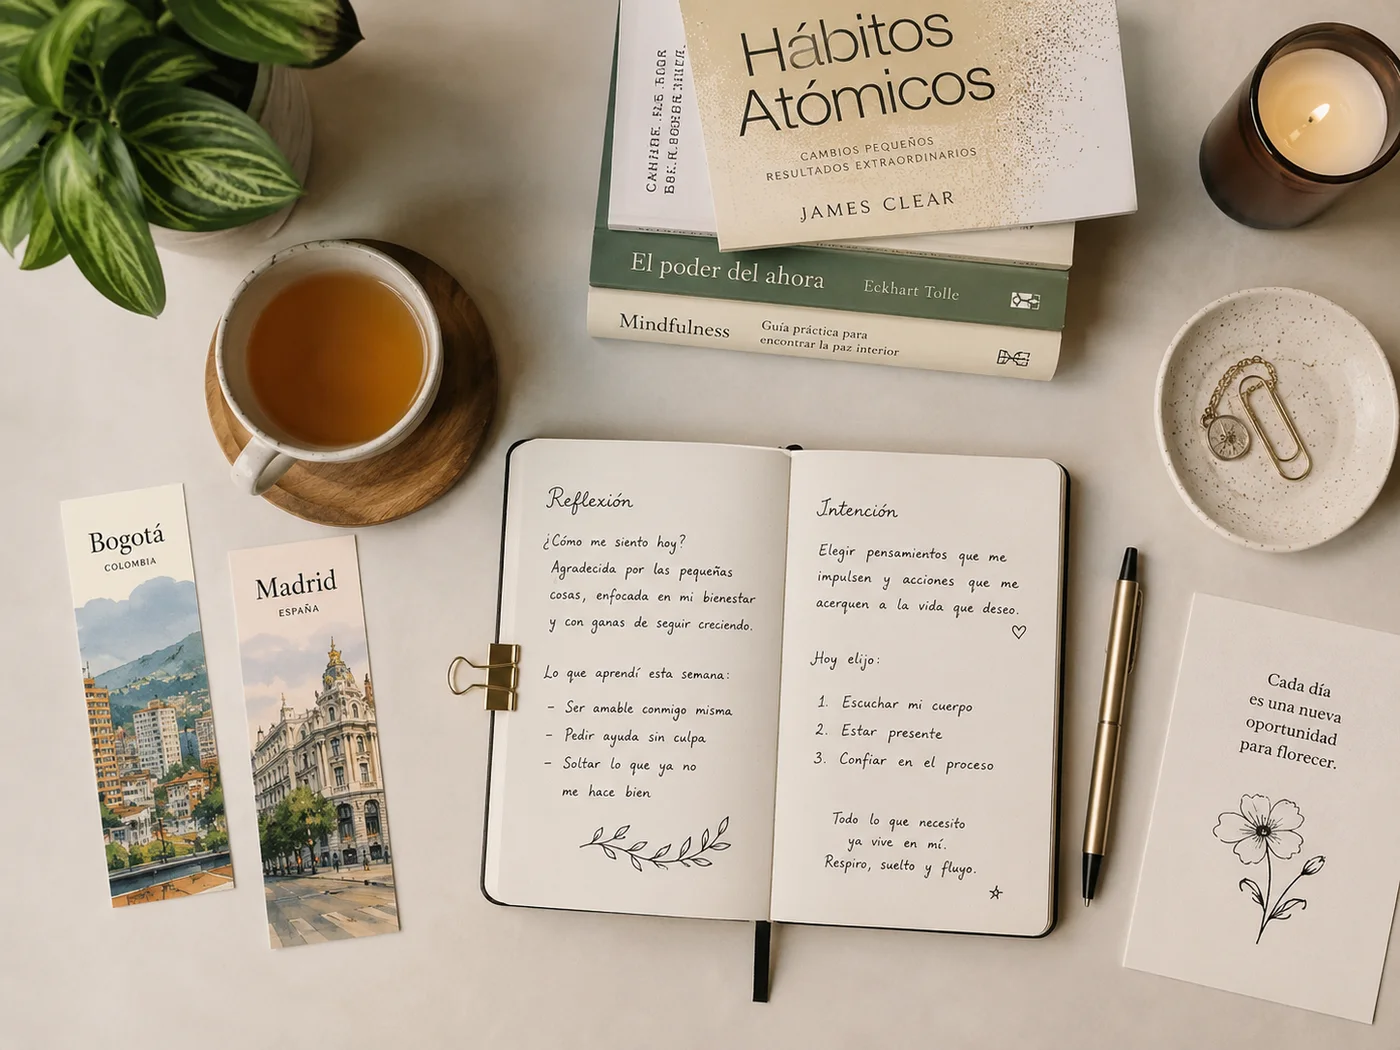 Hábitos
Atómicos
CAMBIOS PEQUEÑOS
RESULTADOS EXTRAORDINARIOS
JAMES CLEAR
El poder del ahora Eckhart Tolle
Mindfulness
Guía práctica para
encontrar la paz interior
Bogotá
COLOMBIA
Madrid
ESPAÑA
Reflexión
¿Cómo me siento hoy?
Agradecida por las pequeñas
cosas, enfocada en mi bienestar
y con ganas de seguir creciendo.
Lo que aprendí esta semana:
- Ser amable conmigo misma
- Pedir ayuda sin culpa
- Soltar lo que ya no
me hace bien
Intención
Elegir pensamientos que me
impulsen y acciones que me
acerquen a la vida que deseo.
Hoy elijo:
1. Escuchar mi cuerpo
2. Estar presente
3. Confiar en el proceso
Todo lo que necesito
ya vive en mí.
Respiro, suelto y fluyo.
Cada día
es una nueva
oportunidad
para florecer.